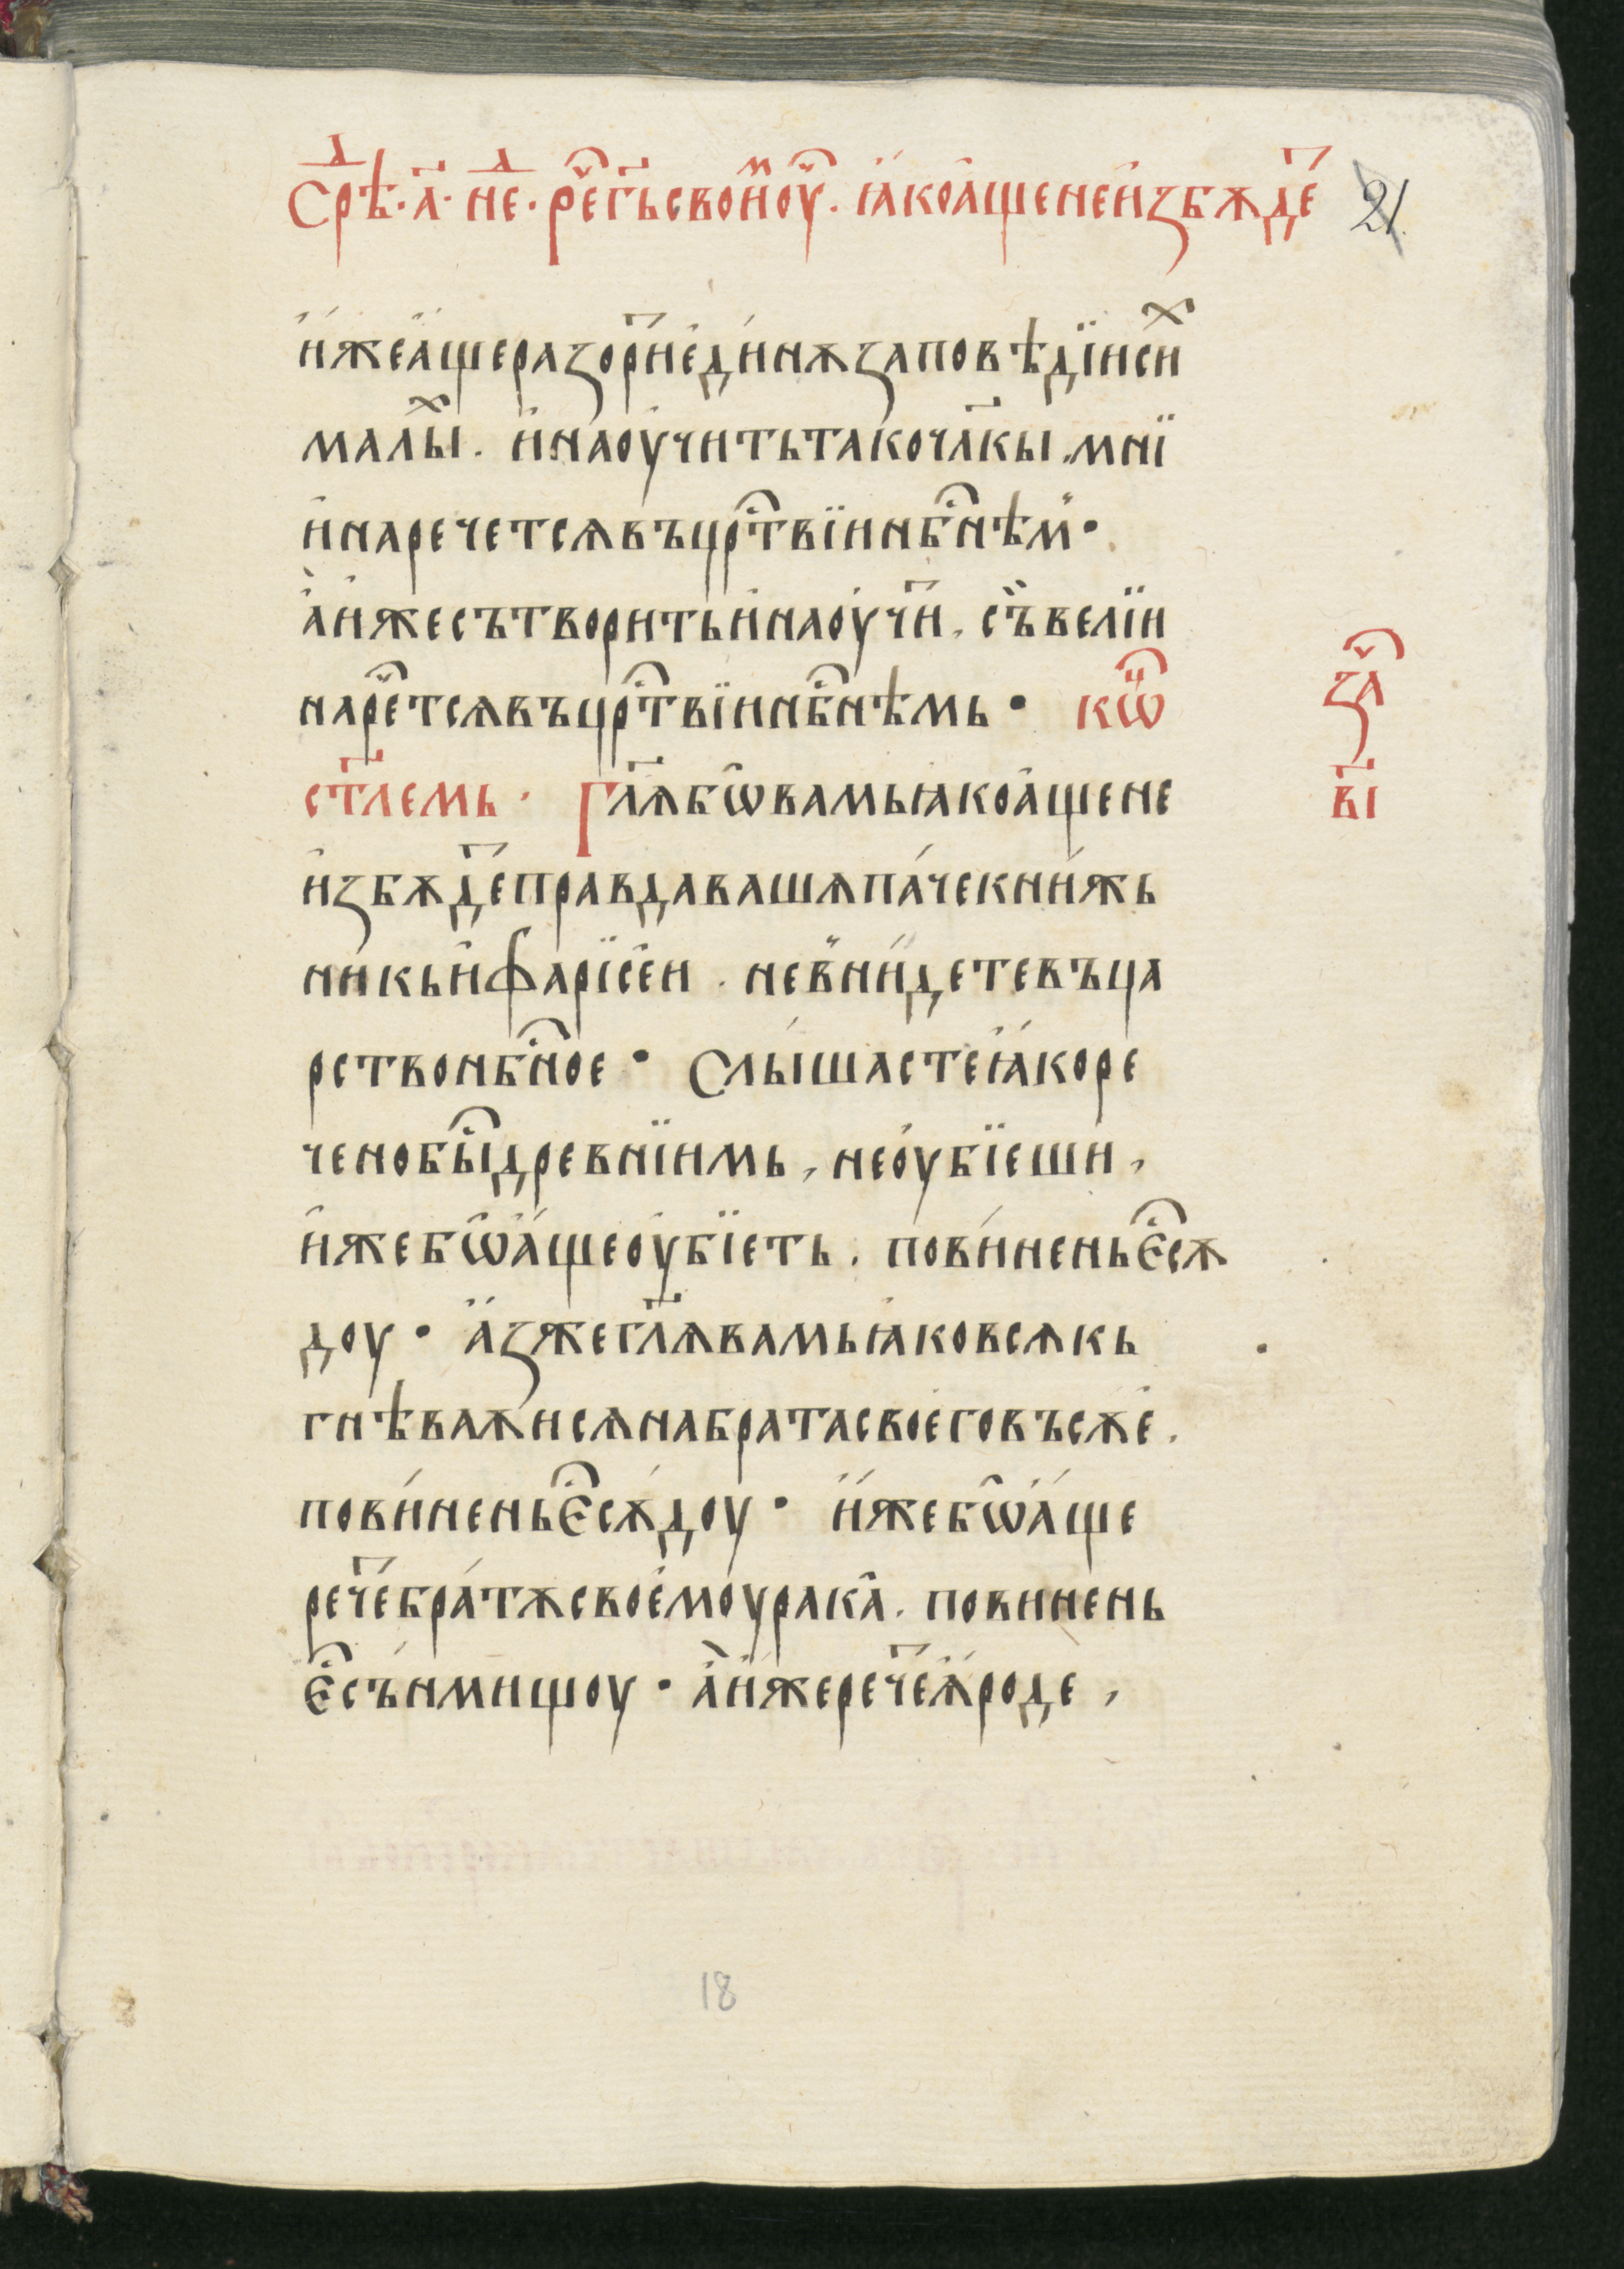 Срѣⷣ · а҃ · неⷣ · реⷱ҇ гь҃ своиⷨ оуⷱ҇ · ꙗко аще не избѫдеⷮ 21
иже аще разориⷮ единѫ заповѣдїи сиⷯ
малыⷯ . и наоучить тако чл҃кы . мнїи
и наречетсѧ въ црⷭ҇твїи нбⷭ҇нѣмь ·
а иже сътворить и наоучиⷮ . съ велїи
нареⷱ҇тсѧ въ црⷭ҇твїи нбⷭ҇нѣмь · кѡⷰ҇
ст҃лемь · Гл҃ѧ бѡ вамь ꙗко аще не
избѫдеⷮ правда ваша паче книжь
никь и фарїсеи . не внидете въ ца
рство нбⷭ҇ное · Слышасте ꙗко ре
чено быⷭ҇ древнїимь , не оубїеши ,
иже бѡ аще оубїеть . повиненъ єⷭ҇ сѫ
доу · аз же гл҃ѧ вамь ꙗко всѧкь
гнѣваѧисѧ на брата своего въсѫе .
повинень єⷭ҇ сѫдоу · иже бѡ аще
речеⷮ братѫ своемоу рака . повинень
єⷭ҇ сънмищоу · а иже речеⷮ ꙗроде ,
заⷱ҇
вı҃
18